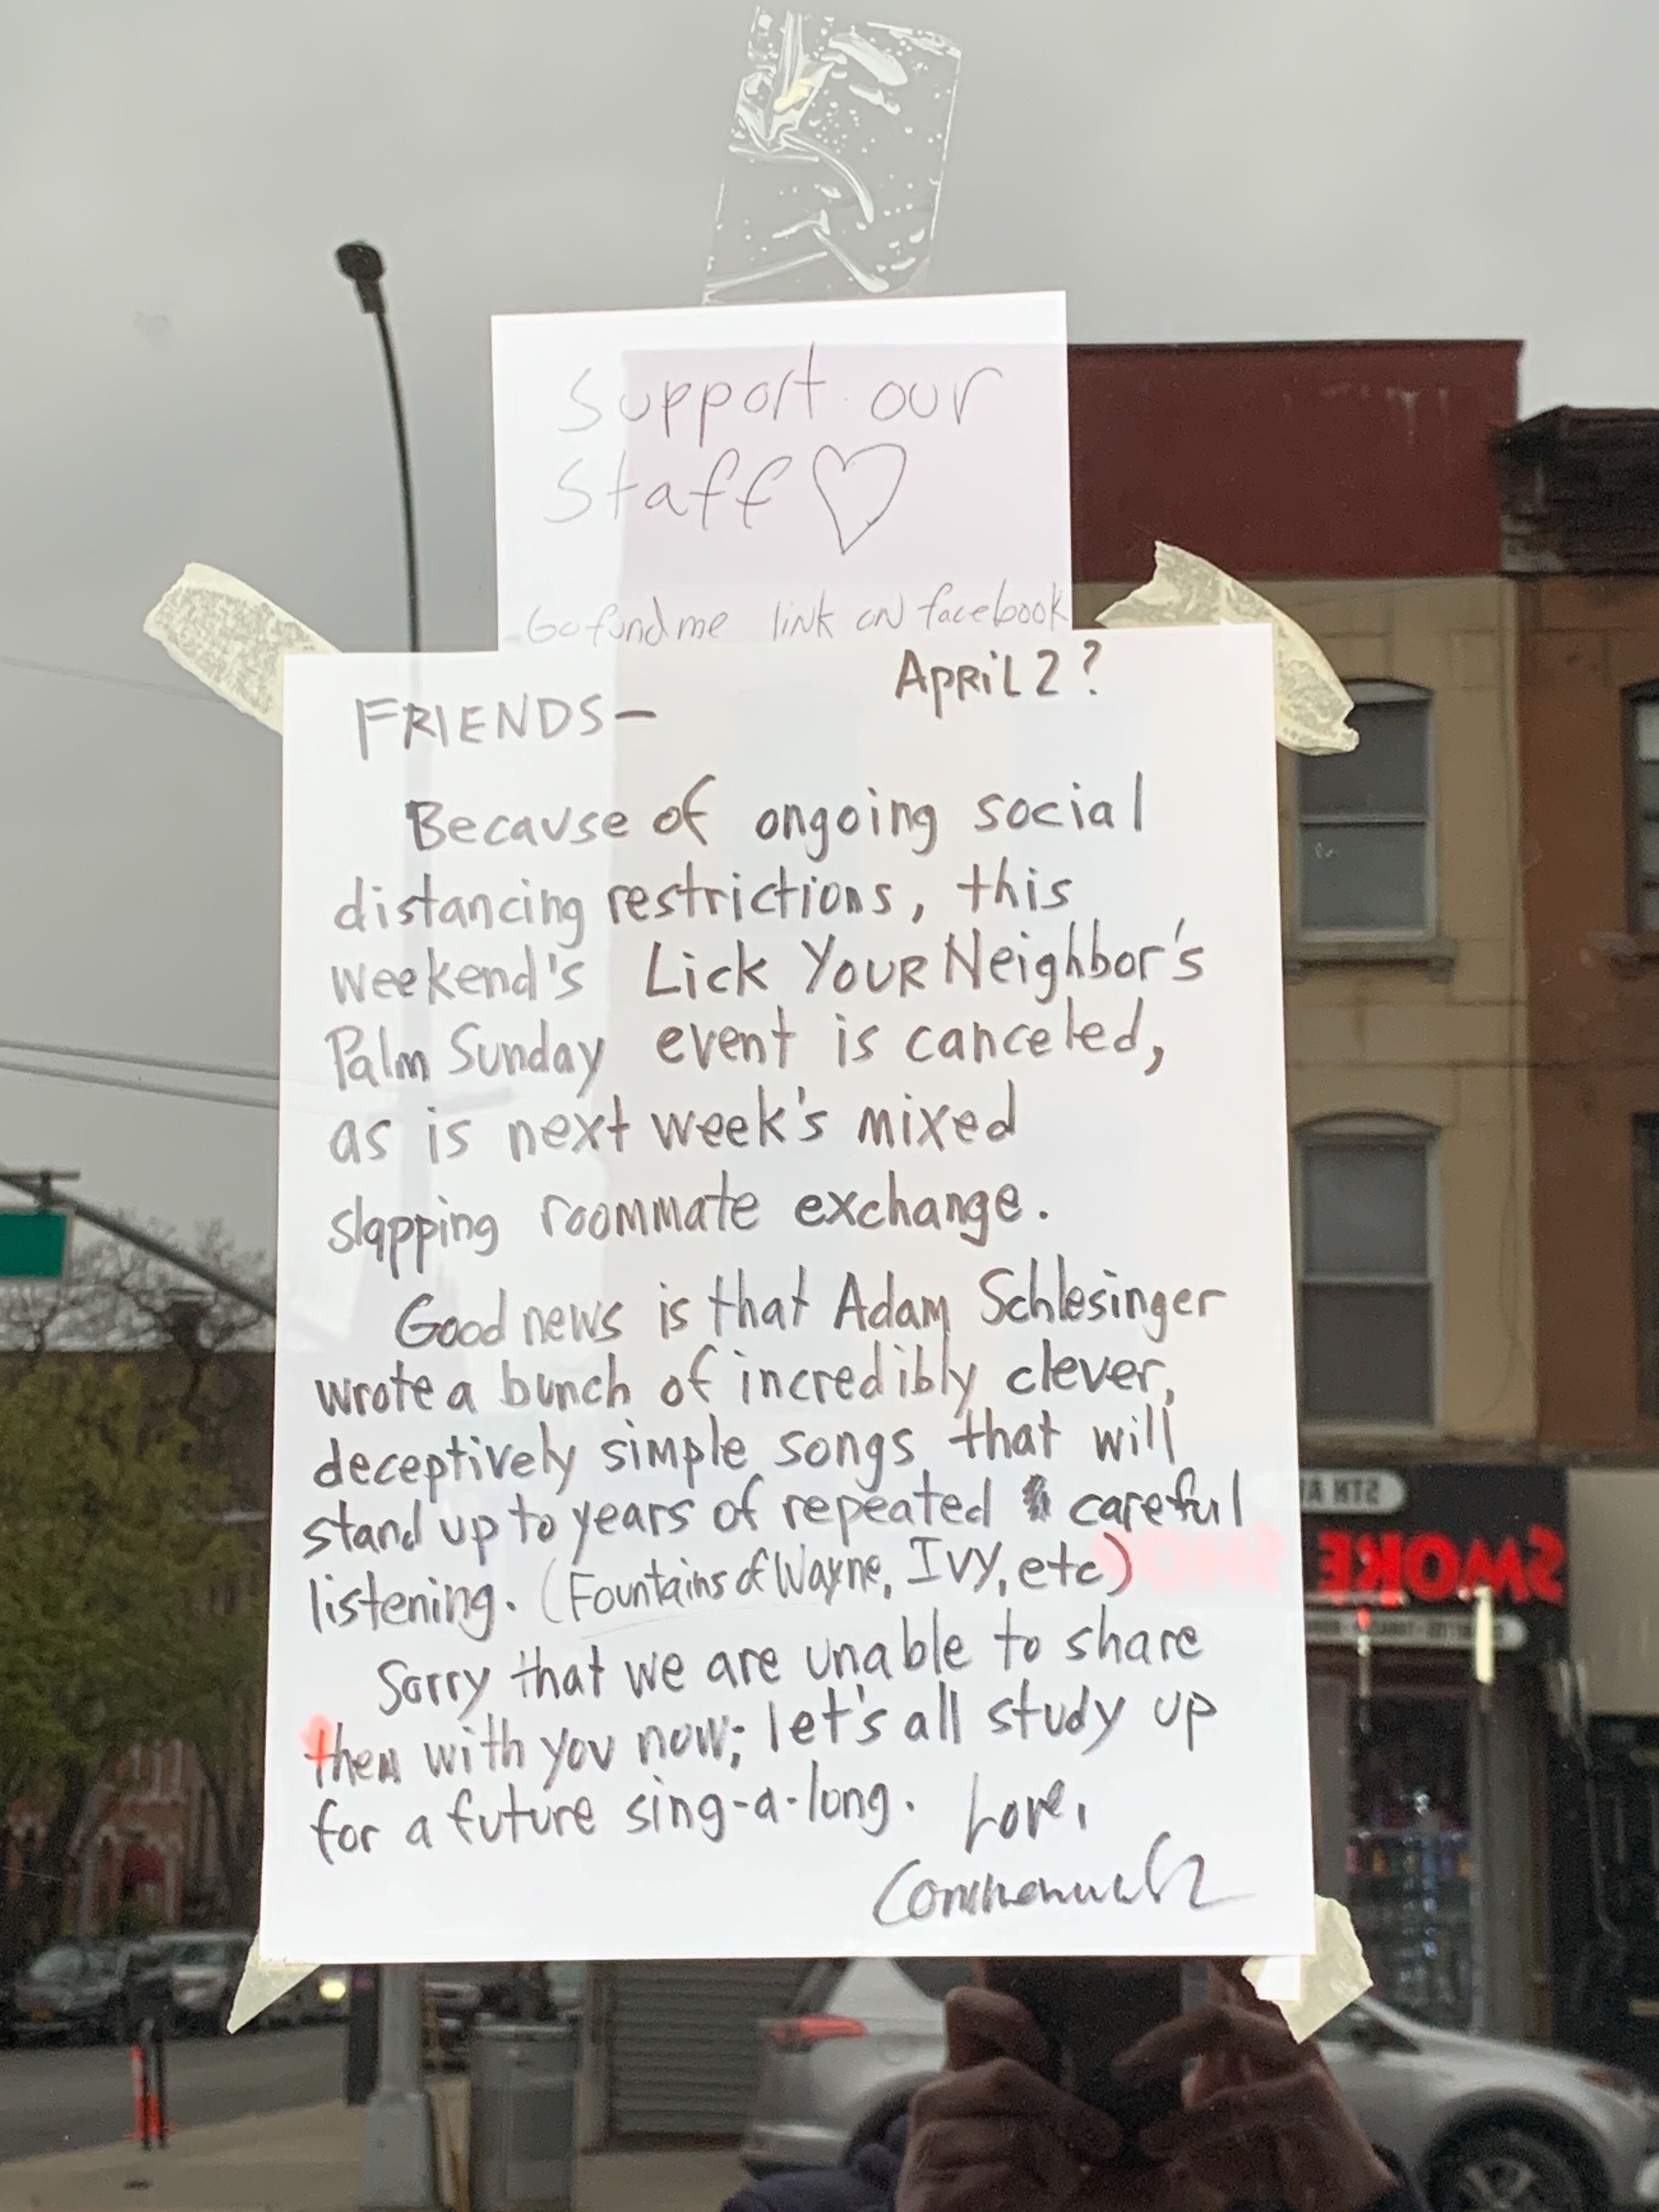 Support our
Staff ♡
Gofundme link on facebook
APRIL 2?
FRIENDS—
Because of ongoing social
distancing restrictions, this
weekend's Lick YOUR Neighbor's
Palm Sunday event is canceled,
as is next week's mixed
slapping roommate exchange.
Good news is that Adam Schlesinger
wrote a bunch of incredibly clever,
deceptively simple songs that will
stand up to years of repeated careful
listening. (Fountains of Wayne, Ivy, etc)
Sorry that we are unable to share
them with you now; let's all study up
for a future sing-a-long. Love,
5TH A
SMOKE